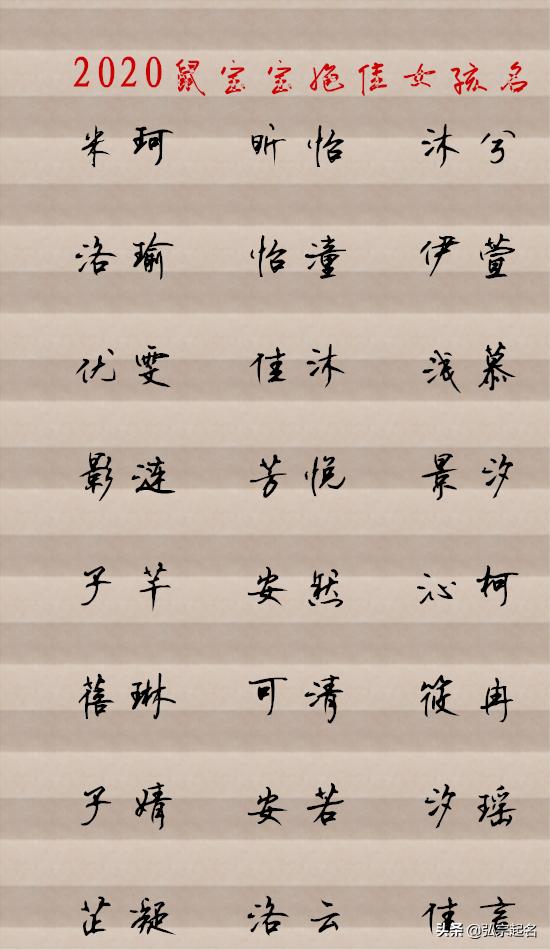 2020鼠宝宝绝佳女孩名
米珂 昕怡 沐兮
洛瑜 怡潼 伊萱
优雯 佳沐 浅慕
影涟 芳悦 景汐
子芊 安然 沁柯
蓓琳 可清 筱冉
子婧 安若 汐瑶
芷凝 洛云 佳言
头条 @弘宗起名